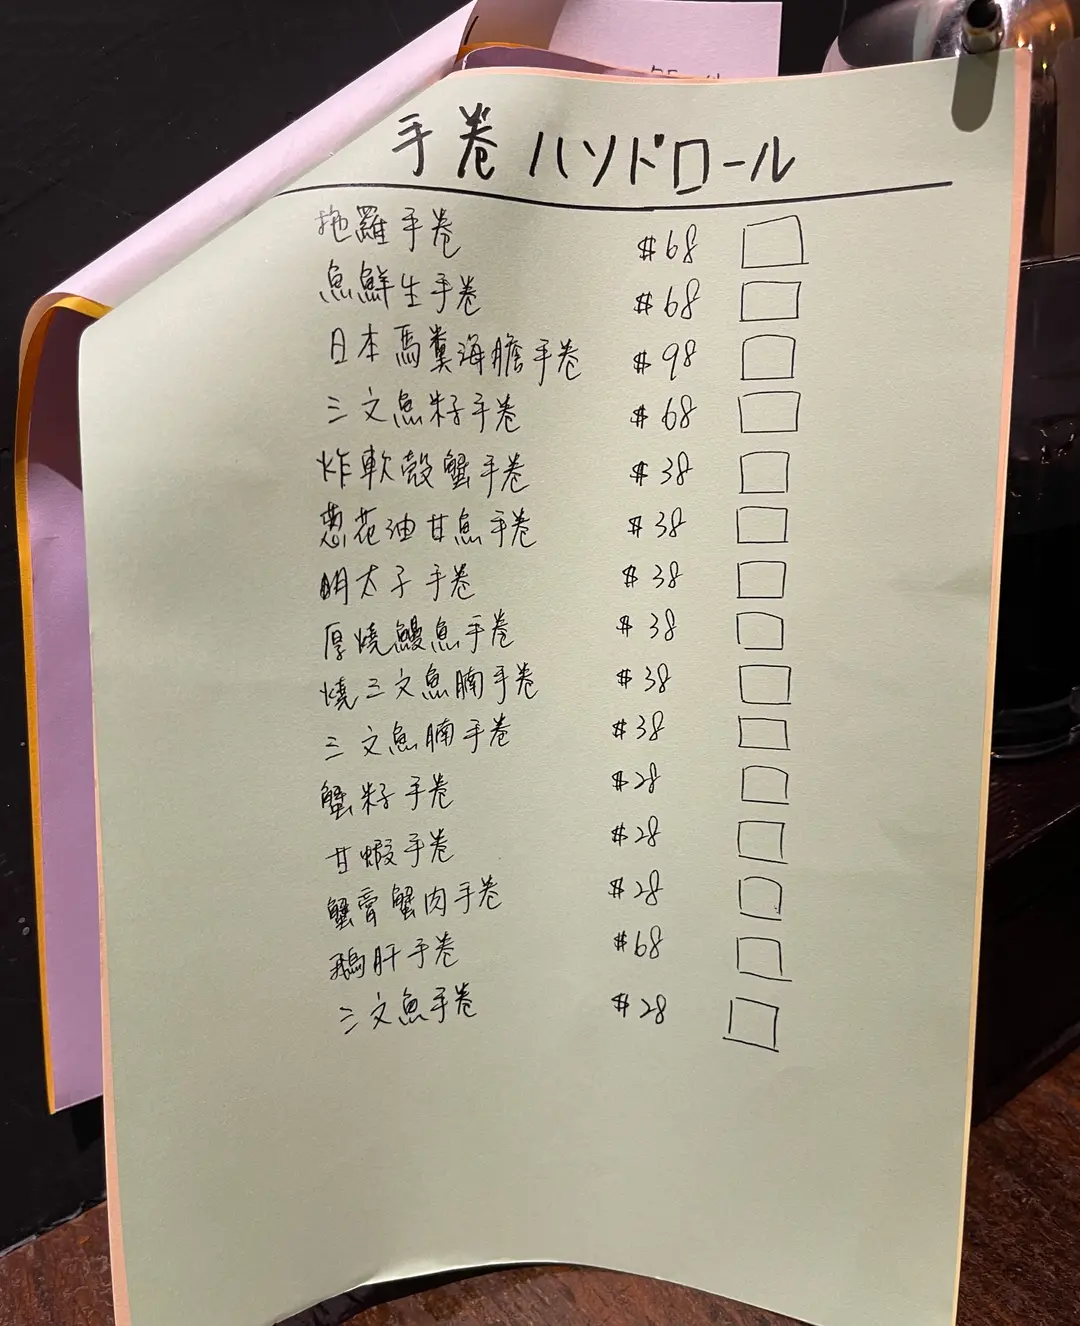 手卷 ハンドロール
拖羅手卷 $68
魚鮮生手卷 $68
日本馬糞海膽手卷 $98
三文魚籽手卷 $68
炸軟殼蟹手卷 $38
蔥花油甘魚手卷 $38
明太子手卷 $38
厚燒鰻魚手卷 $38
燒三文魚腩手卷 $38
三文魚腩手卷 $38
蟹籽手卷 $28
甘蝦手卷 $28
蟹膏蟹肉手卷 $28
鵝肝手卷 $68
三文魚手卷 $28